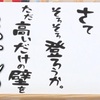 さて
そろそろ登ろうか。
ただ高いだけの壁を